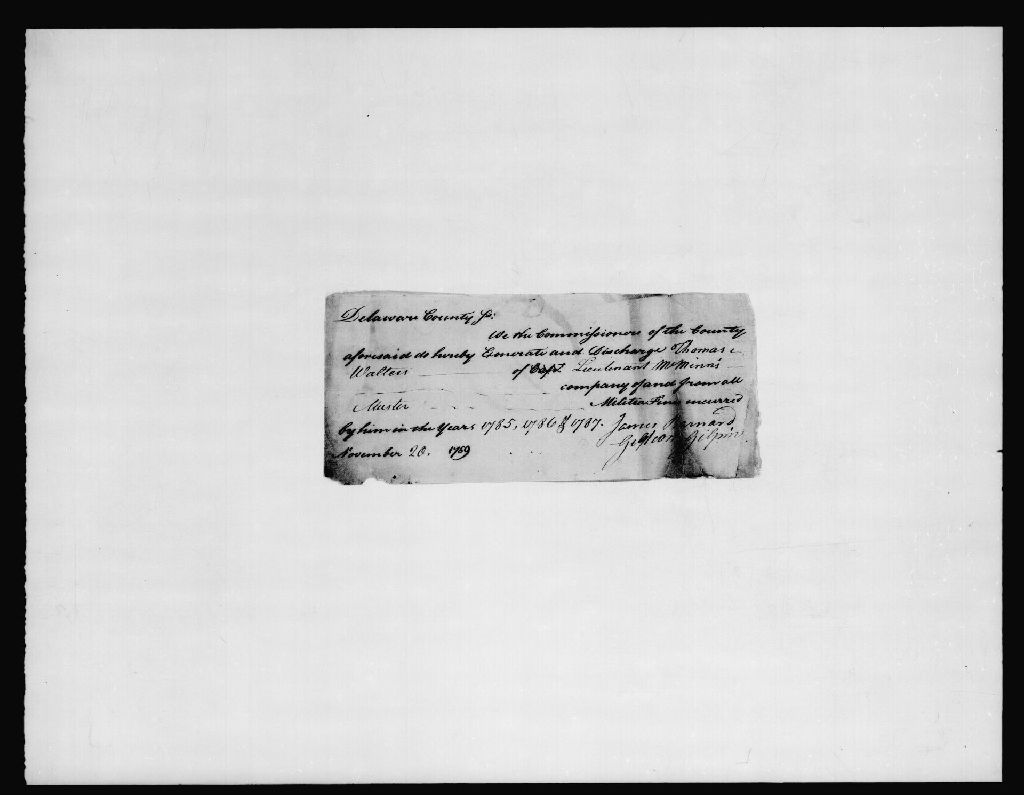 Delaware County Ss.
We the Commissioners of the County
aforesaid do hereby Exonerate and Discharge Thomas
Walters of Capt. Lieutenant McMinn's
company of and from all
Muster Militia Fines incurred
by him in the Years 1785, 1786 & 1787. James Barnard
Gideon Gilpin
November 20. 1789